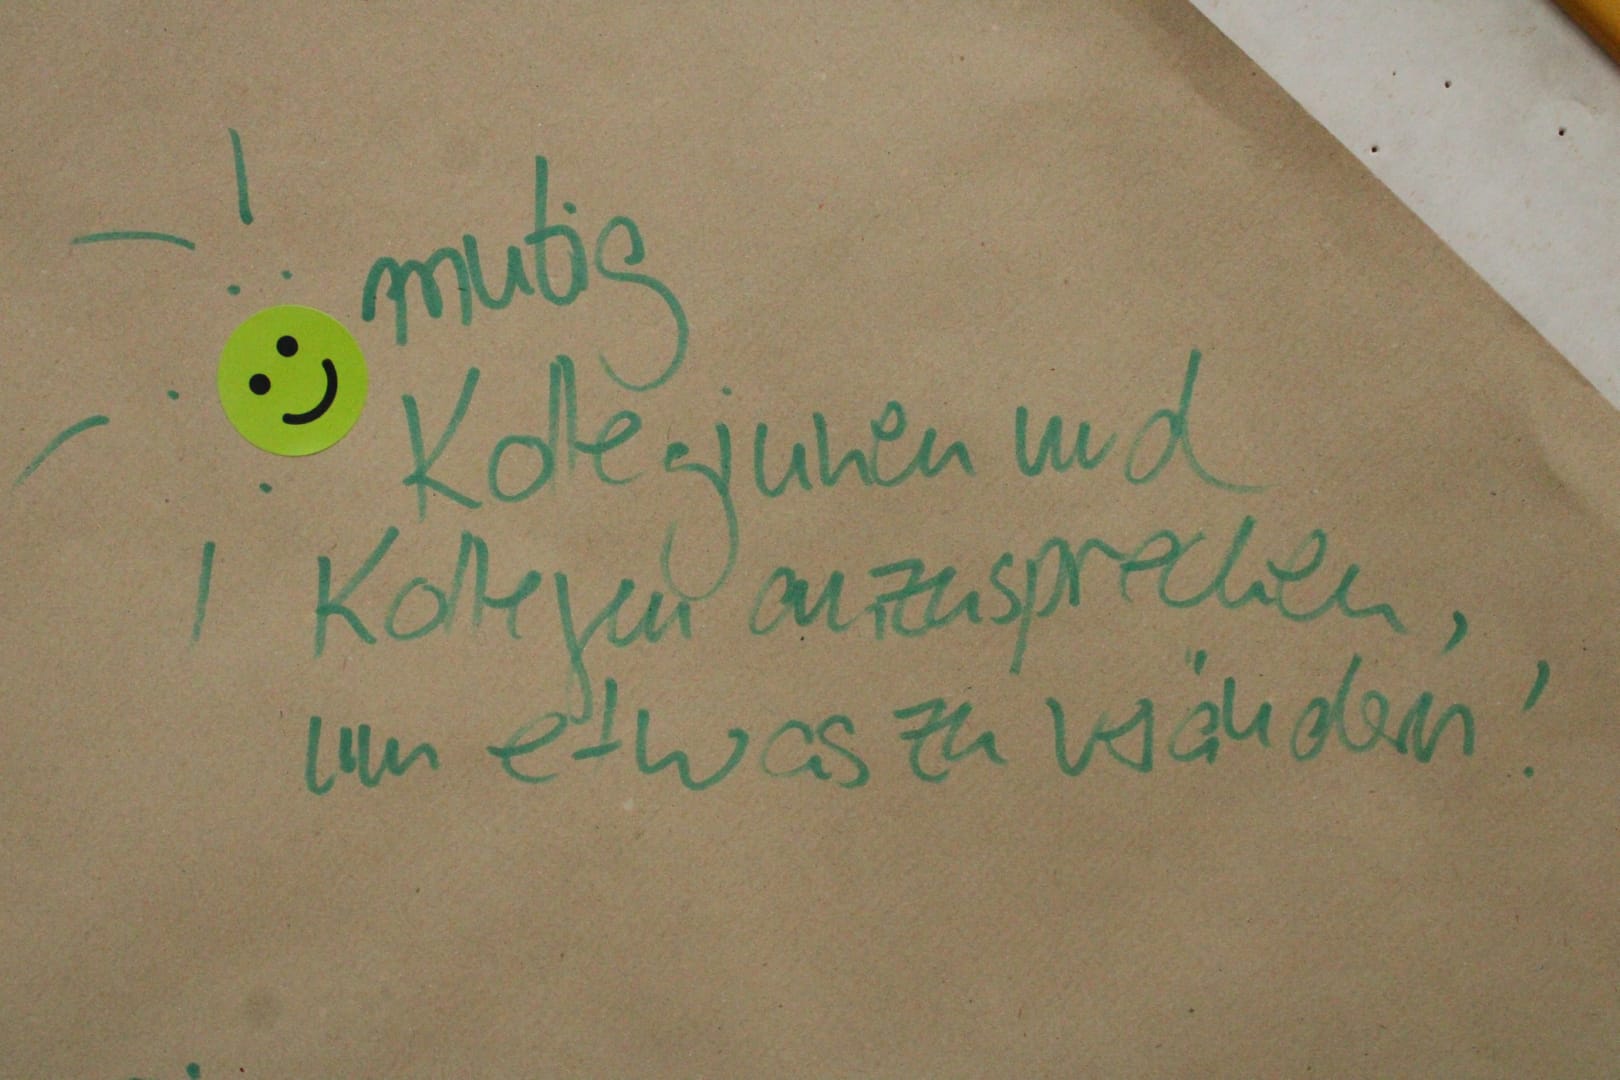 mutig
Kolleginnen und
Kollegen anzusprechen,
um etwas zu verändern!